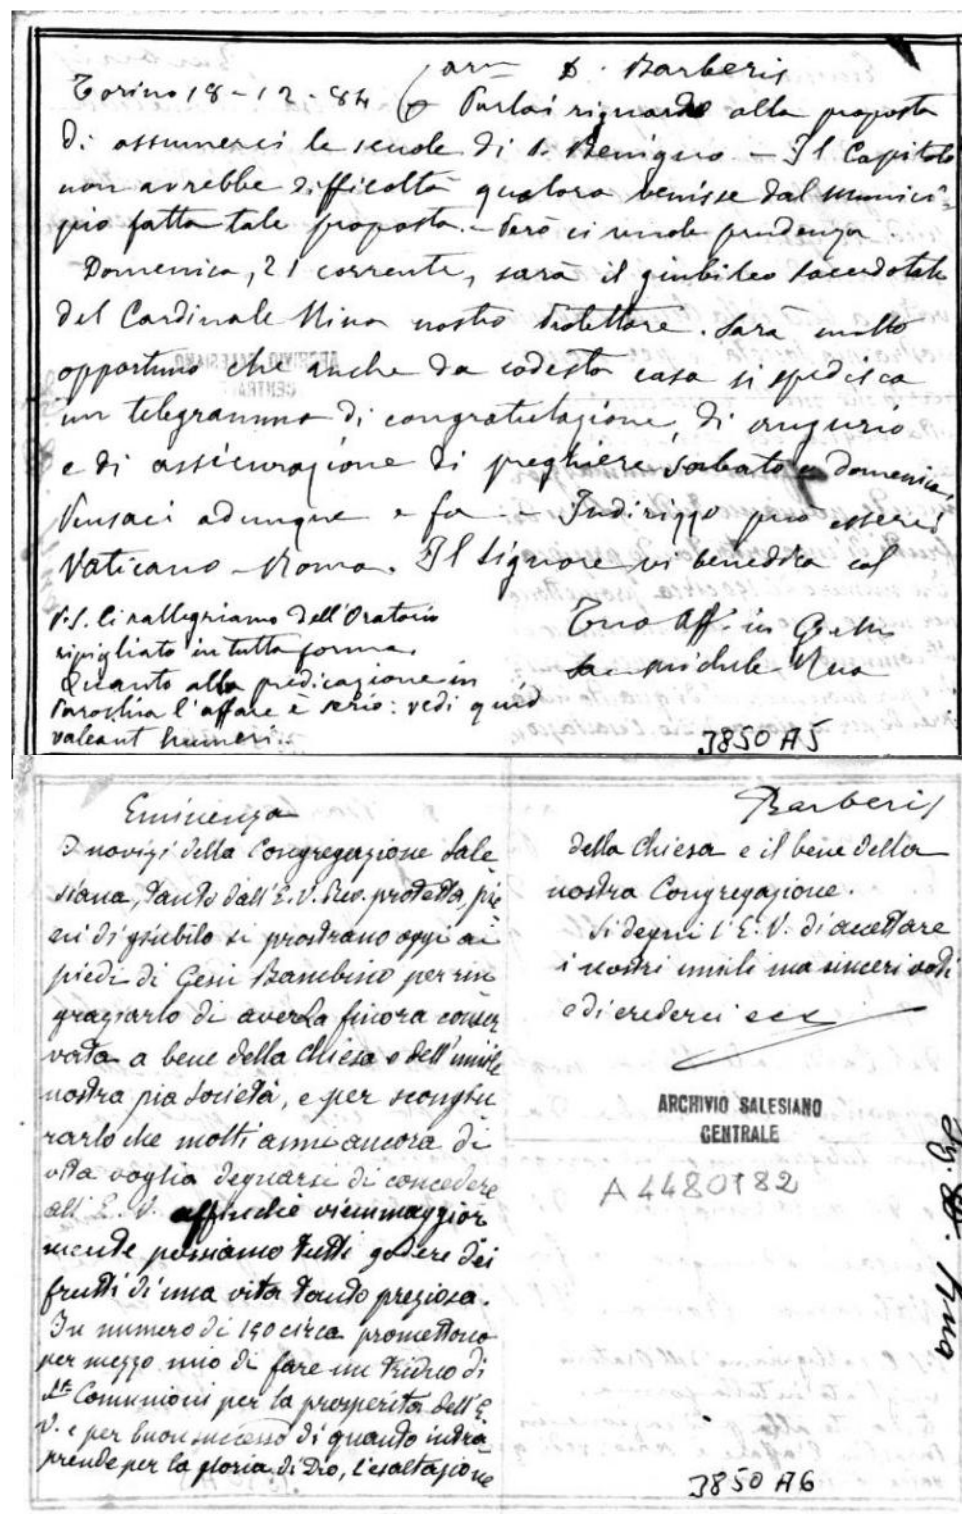 Torino 18-12-84
Car.mo D. Barberis
Parlai riguardo alla proposta
di assumerci le scuole di S. Benigno - Il Capitolo
non avrebbe difficoltà qualora venisse dal munici-
pio fatta tale proposta. - Però ci vuole prudenza
Domenica, 21 corrente, sarà il giubileo sacerdotale
del Cardinale Nina nostro Protettore. Sarà molto
opportuno che anche da codesta casa si spedisca
un telegramma di congratulazione, di augurio
e di assicurazione di preghiere sabato e domenica.
Pensaci adunque e fa - Indirizzo può esserci
Vaticano - Roma. Il Signore vi benedica col
Tuo aff. in G. e M.
Sac. Michele Rua
P.S. Ci rallegriamo dell'Oratorio
ripigliato in tutta forma.
Quanto alla predicazione in
Parochia l'affare è serio: vedi quid
valeant humeri..
3850 A5
ARCHIVIO SALESIANO
CENTRALE
Eminenza
I novizi della Congregazione Sale
siana, tanto dall'E. V. Rev. protetta, pie
ni di giubilo si prostrano oggi ai
piedi di Gesù Bambino per rin
graziarlo di averLa finora conser
vata a bene della Chiesa e dell'umile
nostra pia Società, e per scongiu
rarlo che molti anni ancora di
vita voglia degnarsi di concedere
all'E. V. affinché viemmaggior
mente possiamo tutti godere dei
frutti di una vita tanto preziosa.
In numero di 150 circa promettono
per mezzo mio di fare un triduo di
Ste Comunioni per la prosperità dell'E.
V. e per buon successo di quanto intra
prende per la gloria di Dio, l'esaltazione
Barberis
della Chiesa e il bene della
nostra Congregazione.
Si degni l'E. V. di accettare
i nostri umili ma sinceri voti
e di crederci ecc
ARCHIVIO SALESIANO
CENTRALE
A4480182
Rua
3850 A6